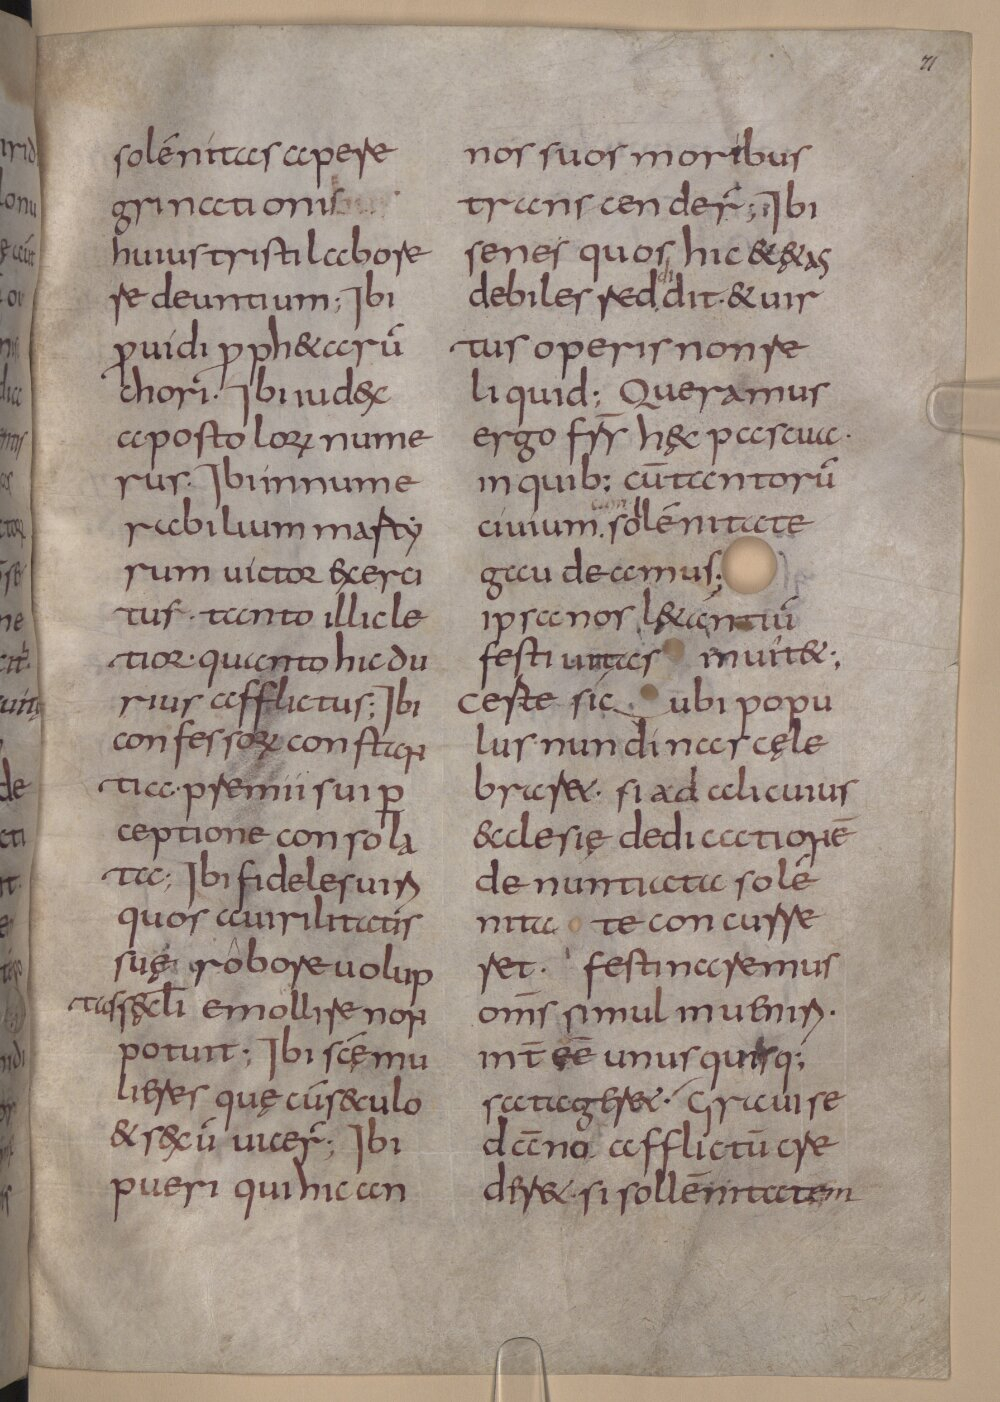 71
solēnitas apere
grinationis
huius tristi labore
redeuntium; Ibi
ꝓuidi ꝓph&arū
chori. Ibi iudex
apostoloꝝ nume
rus. Ibi innume
rabilium marty
rum uictor exerci
tus. tanto illic le
tior. quanto hic du
rius afflictus; Ibi
confessoꝝ constan
tia. premii sui ꝑ
ceptione consola
ta; Ibi fideles uiri
quos a uirilitatis
suę robore uolup
tas sęcli emollire non
potuit; Ibi scę mu
lieres quę cū sęculo
& sexū uicer̄; Ibi
pueri qui hic an
nos suos moribus
transcender̄; Ibi
senes quos hic & ętas
debiles reddidit. & uir
tus operis non re
liquid; Queramus
ergo frr̄ hęc pascua.
in quib; cū tantorū
ciuium solēnitate
gaudeamus;
ipsa nos l&antiū
festiuitas inuit&;
Certe sic ubi popu
lus nundinas cęle
brar&. si ad alicuius
ęclesię dedicationē
denuntiata solē
nitate concurre
ret. festinaremus
om̄s simul inueniri.
int̄ eē unusquisq;
satager&. Graui se
dāno afflictū cre
der&. si sollēnitatem